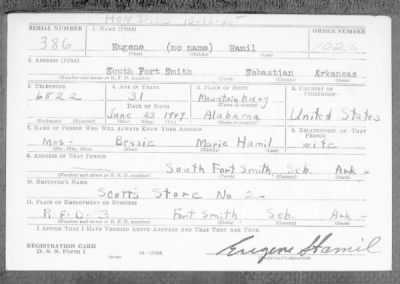 HON DISC 12-16-45
SERIAL NUMBER 1. NAME (Print) ORDER NUMBER
386 Eugene (no name) Hamil 1026
(First) (Middle) (Last)
2. ADDRESS (Print)
South Fort Smith Sebastian Arkansas
(Number and street or R. F. D. number) (Town) (County) (State)
3. TELEPHONE 4. AGE IN YEARS 5. PLACE OF BIRTH 6. COUNTRY OF CITIZENSHIP
6822 31 Mountainburg
DATE OF BIRTH (Town or county)
June 23 1909 Alabama United States
(Exchange) (Number) (Mo.) (Day) (Yr.) (State or country)
7. NAME OF PERSON WHO WILL ALWAYS KNOW YOUR ADDRESS 8. RELATIONSHIP OF THAT PERSON
Mrs - Bessie Marie Hamil wife
(Mr., Mrs., Miss) (First) (Middle) (Last)
9. ADDRESS OF THAT PERSON
South Fort Smith, Seb. Ark -
(Number and street or R. F. D. number) (Town) (County) (State)
10. EMPLOYER'S NAME
Scott's Store No 2 -
11. PLACE OF EMPLOYMENT OR BUSINESS
R.F.D. 3 Fort Smith Seb. Ark -
(Number and street or R. F. D. number) (Town) (County) (State)
I AFFIRM THAT I HAVE VERIFIED ABOVE ANSWERS AND THAT THEY ARE TRUE.
REGISTRATION CARD
D. S. S. Form 1 (over) Eugene Hamil
(Registrant's signature)